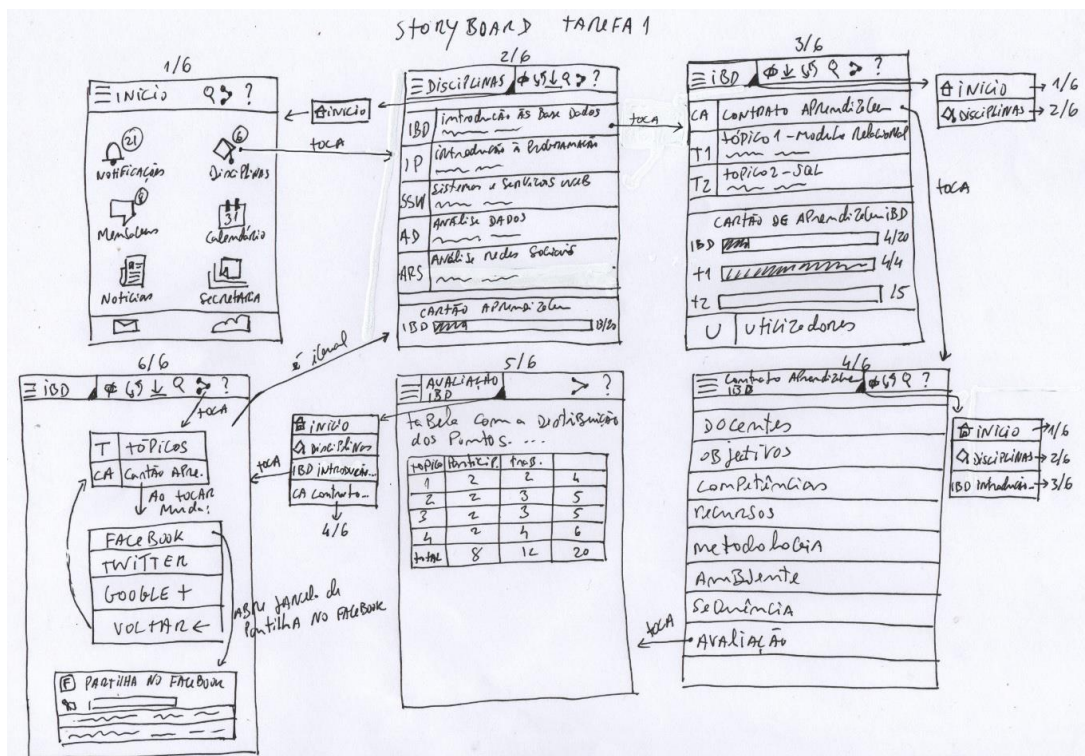 STORYBOARD TAREFA 1
1/6
INÍCIO ?
21
NOTIFICAÇÕES
6
Disciplinas
Mensagens
31
Calendário
Notícias
SECRETARIA
INÍCIO
TOCA
2/6
DISCIPLINAS ?
IBD introdução às Base Dados
IP introdução à Programação
SSW Sistemas e Serviços WEB
AD ANÁLISE DADOS
ARS Análise redes Sociais
CARTÃO APrendizagem
IBD 18/20
TOCA
3/6
IBD ?
CA CONTRATO APrendizagem
T1 TÓPICO 1 - Modelo Relacional
T2 TOPICO 2 - SQL
CARTÃO DE APrendizagem IBD
IBD 4/20
T1 4/4
T2 15
U Utilizadores
INÍCIO 1/6
DISCIPLINAS 2/6
TOCA
4/6
Contrato Aprendizagem ?
IBD
DOCENTES
OBJETIVOS
Competências
recursos
metodologia
AmBIente
Sequência
AVALIAÇÃO
INÍCIO 1/6
DISCIPLINAS 2/6
IBD Introdução... 3/6
TOCA
5/6
AVALIAÇÃO ?
IBD
tabela com a Distribuição
dos Pontos. ...
tópico Particip. trab.
1 2 2 4
2 2 3 5
3 2 3 5
4 2 4 6
total 8 12 20
INÍCIO
Disciplinas
IBD introdução...
CA Contrato...
4/6
TOCA
6/6
é igual
IBD ?
TOCA
T TÓPICOS
CA Cartão APre.
Ao tocar
Muda:
FACEBOOK
TWITTER
GOOGLE +
VOLTAR
ABre JANela de
Partilha NO FACEBOOK
F PARTILHA NO FACEBOOK